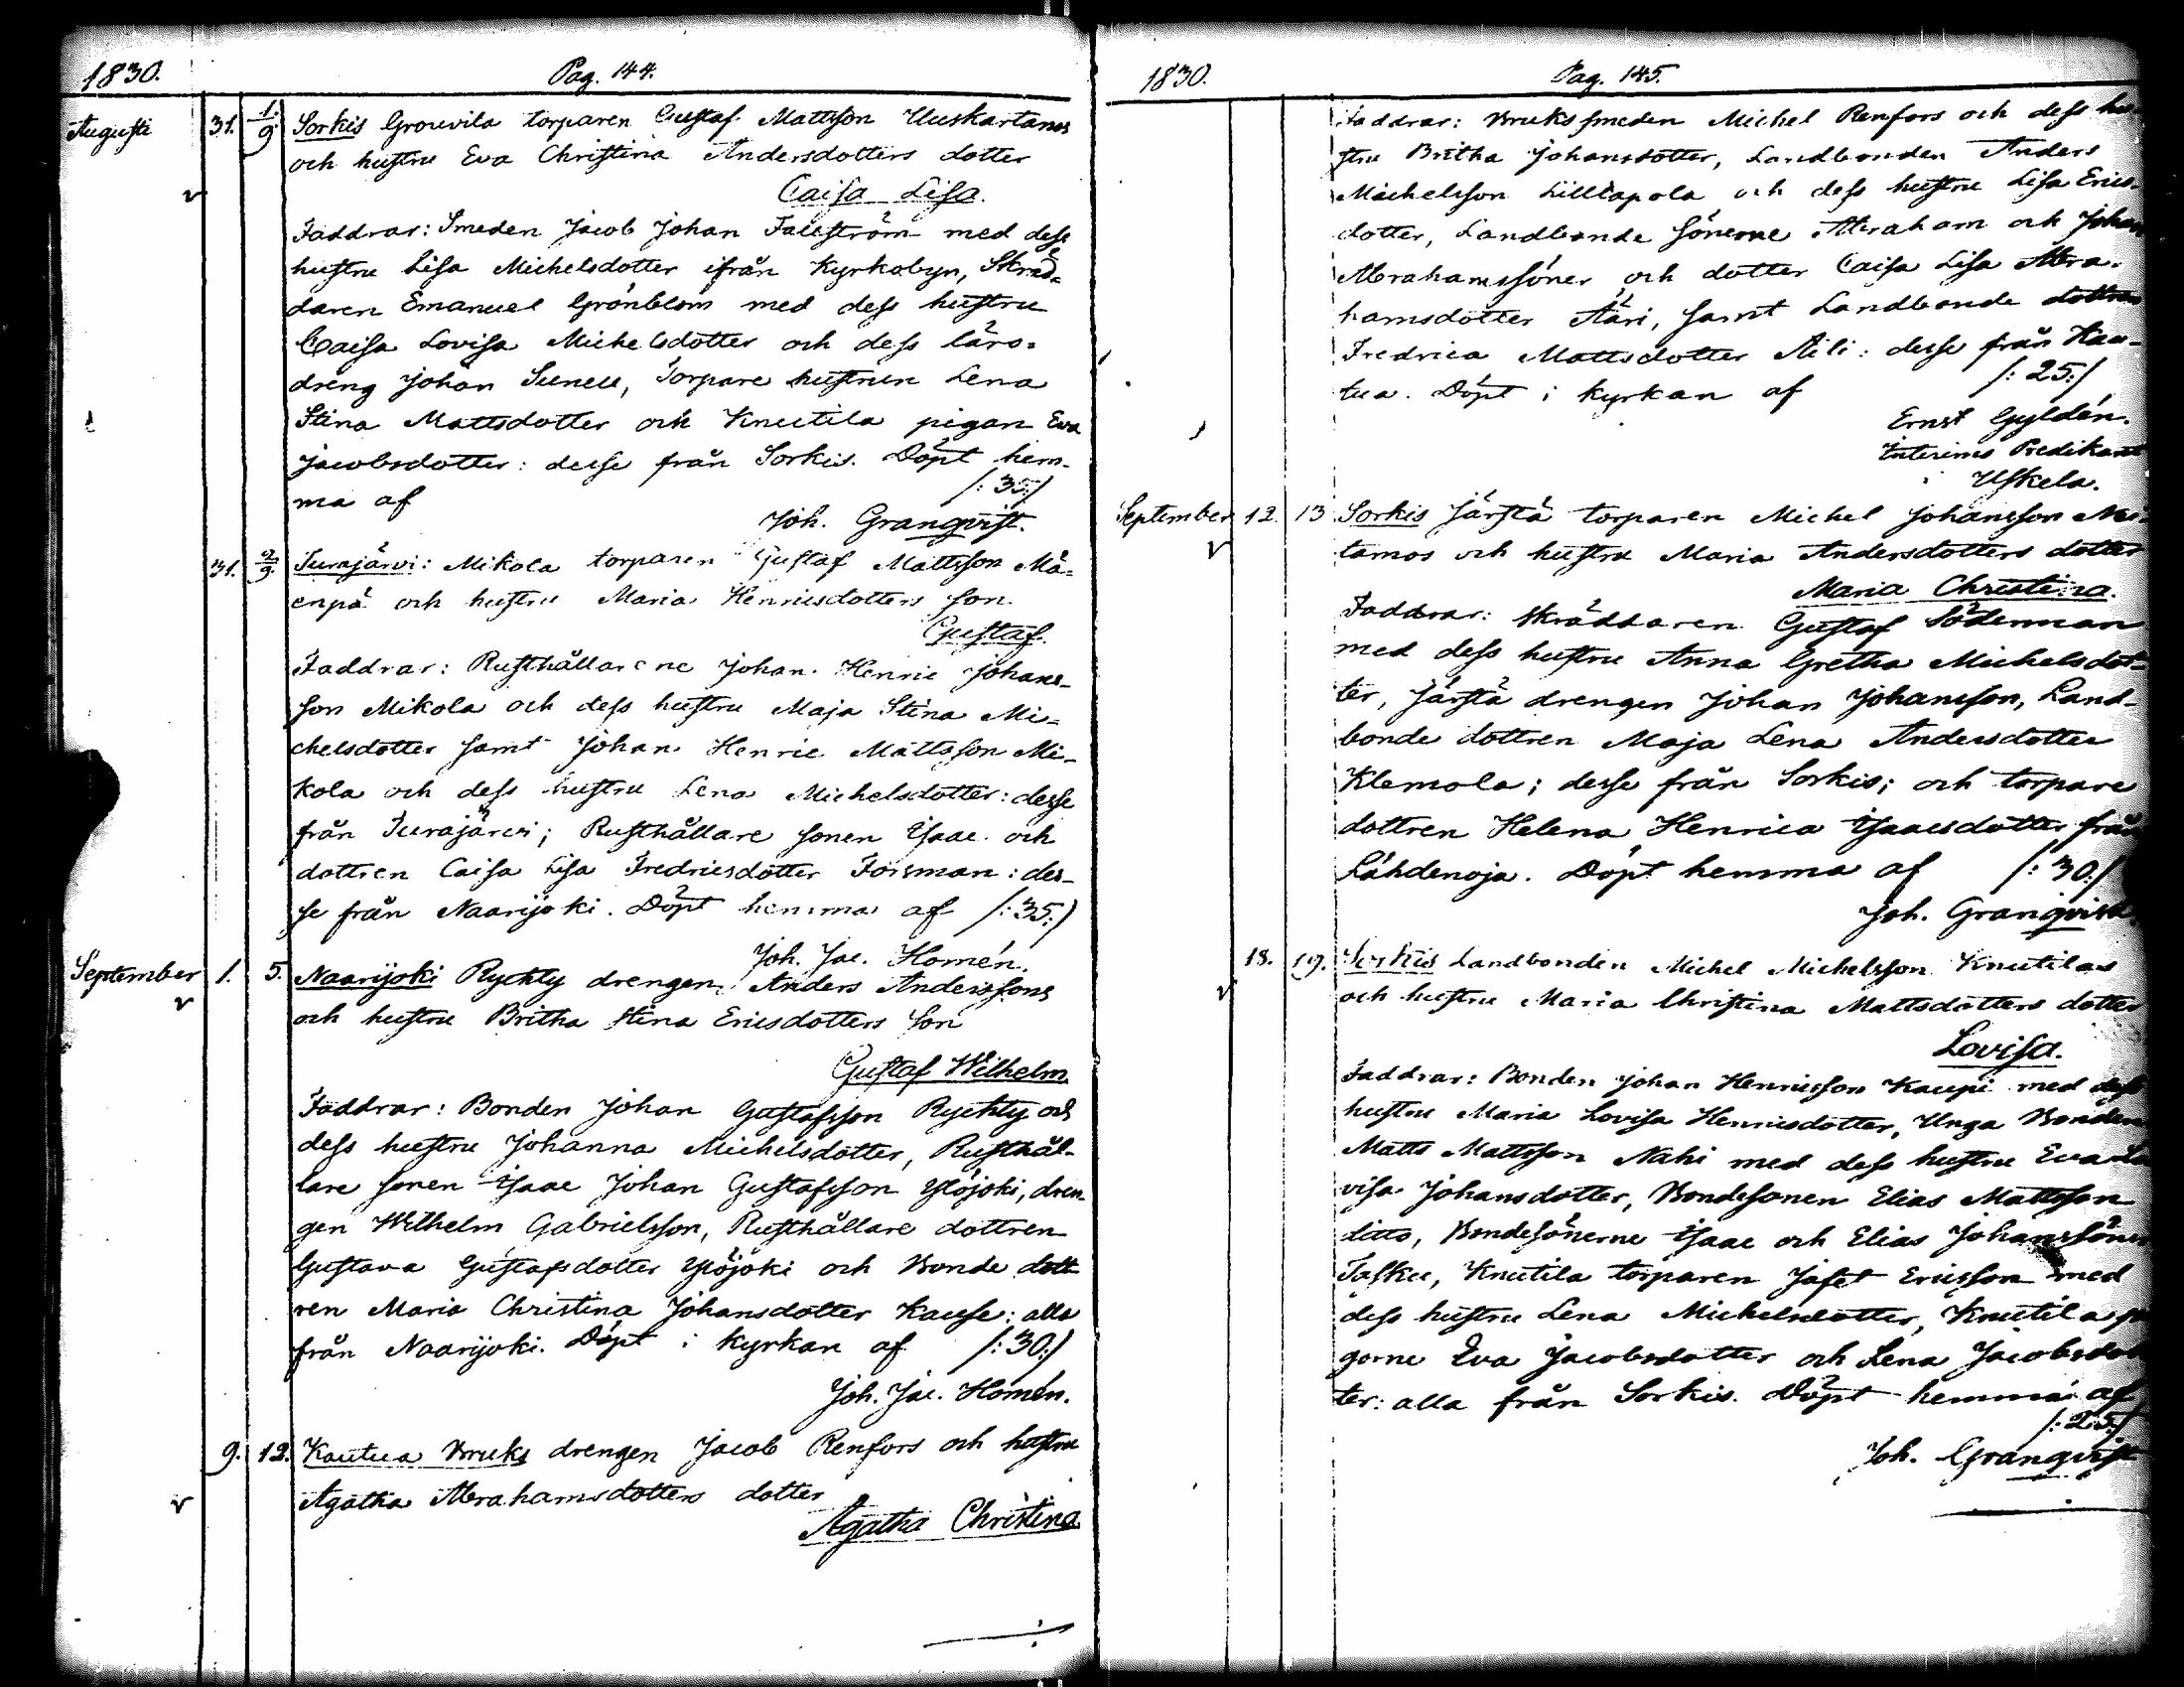 1830. Pag. 144.
Augusti 31. 1/9 Sorkis Grouvila torparen Gustaf Mattsson Uuskartanos
och hustru Eva Christina Andersdotters dotter
Caisa Lisa.
Faddrar: Smeden Jacob Johan Fallström med dess
hustru Lisa Michelsdotter ifrån Kyrkobyn, Skräd-
daren Emanuel Grönblom med dess hustru
Caisa Lovisa Michelsdotter och dess läro-
dreng Johan Suneli, Torpare hustrun Lena
Stina Mattsdotter och Knutila pigan Eva
Jacobsdotter: desse från Sorkis. Döpt hem-
ma af /:35:/
Joh. Granqvist.
31. 2/9. Turajärvi: Mikola torparen Gustaf Mattsson Mä-
enpä och hustru Maria Henricsdotters son
Gustaf.
Faddrar: Rusthållarene Johan Henric Johans-
son Mikola och dess hustru Maja Stina Mi-
chelsdotter samt Johan Henric Mattsson Mi-
kola och dess hustru Lena Michelsdotter: desse
från Turajärvi; Rusthållare sonen Isaac och
dottren Caisa Lisa Fredricsdotter Forsman: des-
se från Naarijoki. Döpt hemma af /:35:/
Joh. Jac. Homén.
September 1. 5. Naarijoki Rychty drengen Anders Anderssons
och hustru Britha Stina Ericsdotters son
Gustaf Wilhelm.
Faddrar: Bonden Johan Gustafsson Rychty och
dess hustru Johanna Michelsdotter, Rusthål-
lare sonen Isaac Johan Gustafsson Ylöjoki, dren-
gen Wilhelm Gabrielsson, Rusthållare dottren
Gustava Gustafsdotter Ylöjoki och Bonde dott-
ren Maria Christina Johansdotter Kause: alla
från Naarijoki. Döpt i kyrkan af /:30:/
Joh. Jac. Homén.
9. 12. Kautua Bruks drengen Jacob Renfors och hustru
Agatha Abrahamsdotters dotter
Agatha Christina
1830. Pag. 145.
Faddrar: Bruks smeden Michel Renfors och dess hu-
stru Britha Johansdotter, Landbonden Anders
Michelsson Lilltapola och dess hustru Lisa Erics-
dotter, Landbonde sönerne Abraham och Johan
Abrahamssöner och dotter Caisa Lisa Abra-
hamsdotter Ääri, samt Landbonde dottren
Fredrica Mattsdotter Äili: desse från Kau-
tua. Döpt i kyrkan af /:25:/
Ernst Gyldén.
Interims Predikant
i Uskela.
September 12. 13 Sorkis Järstä torparen Michel Johansson
tamos och hustru Maria Andersdotters dotter
Maria Christina.
Faddrar: skräddaren Gustaf Söderman
med dess hustru Anna Gretha Michelsdot-
ter, Järstä drengen Johan Johansson, Land-
bonde dottren Maja Lena Andersdotter
Klemola; desse från Sorkis; och torpare
dottren Helena Henrica Isaacsdotter från
Lähdenoja. Döpt hemma af /:30:/
Joh. Granqvist.
18. 19. Sorkis Landbonden Michel Michelsson Knutilas
och hustru Maria Christina Mattsdotters dotter
Lovisa.
Faddrar: Bonden Johan Henricsson Kaupi med dess
hustru Maria Lovisa Henricsdotter, Unga Bonden
Matts Mattsson Nahi med dess hustru Eva Lo-
visa Johansdotter, Bondesonen Elias Mattsson
ditto, Bondesönerne Isaac och Elias Johanssöner
Tasku, Knutila torparen Jafet Ericsson med
dess hustru Lena Michelsdotter, Knutila pi-
gorne Eva Jacobsdotter och Lena Jacobsdot-
ter: alla från Sorkis. Döpt hemma af
/:25:/
Joh. Granqvist